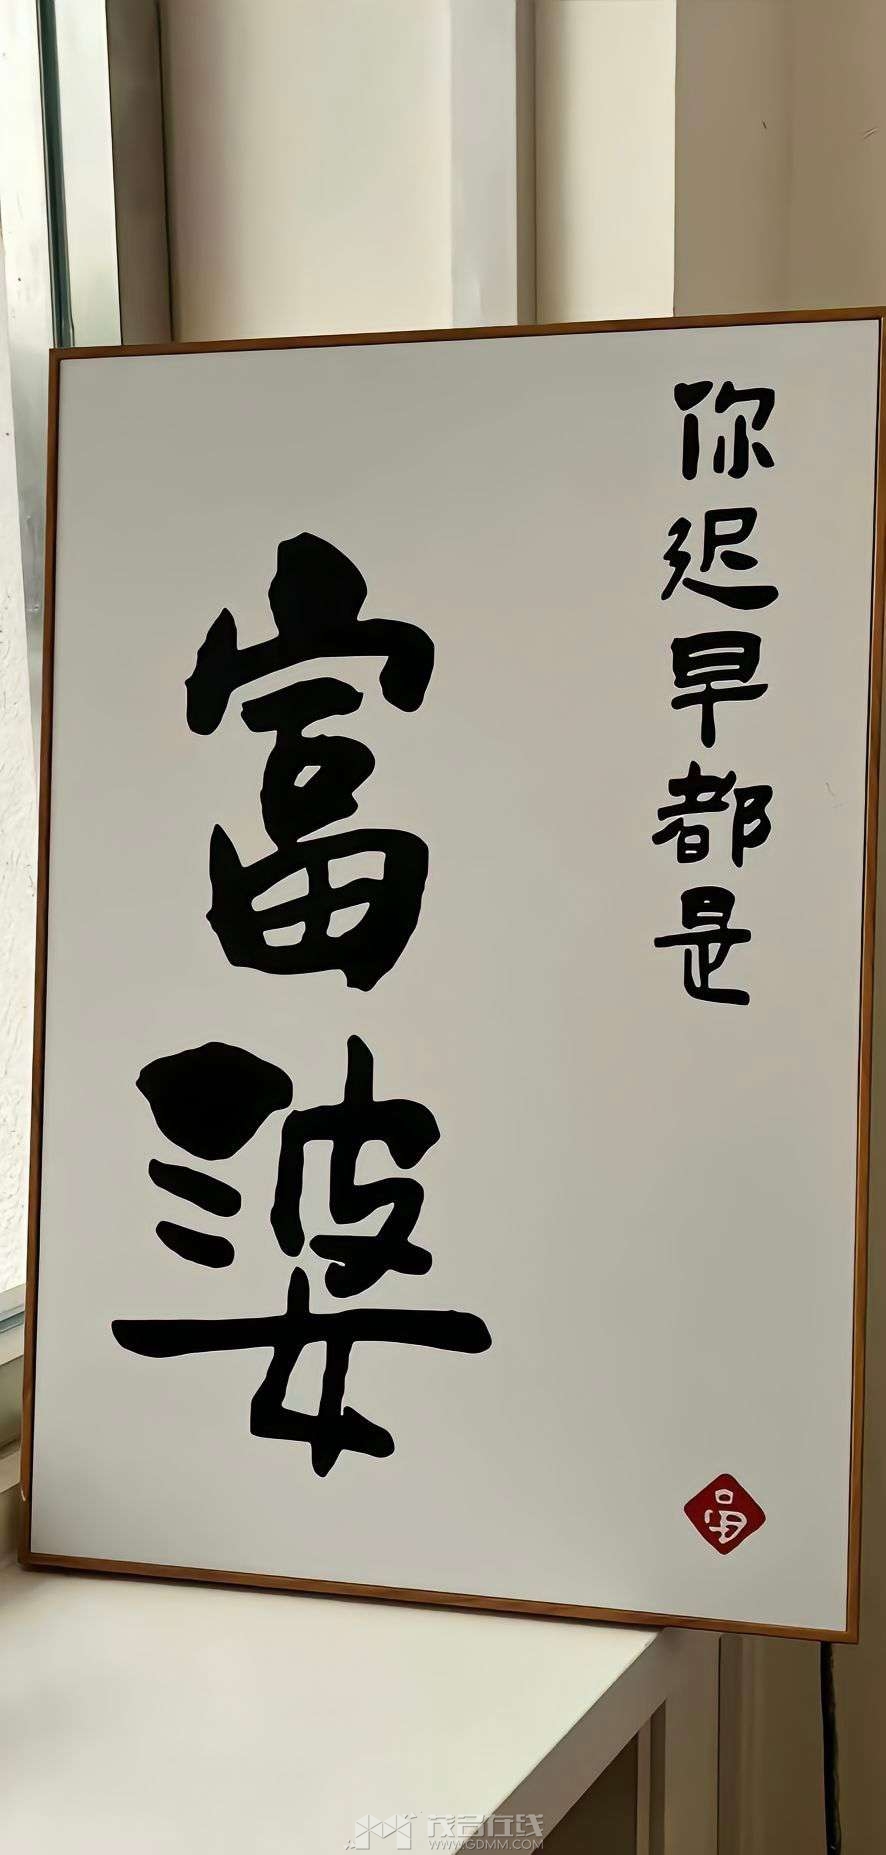 你迟早都是
富婆
富
茂名在线
WWW.GDMM.COM